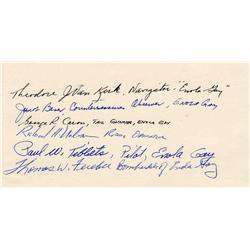 Theodore J. Van Kirk, Navigator "Enola Gay"
Jacob Beser Countermeasures Observer, Enola Gay
George R. Caron, Tail Gunner, Enola Gay
Richard H. Nelson Radio
Paul W. Tibbets, Pilot, Enola Gay
Thomas W. Ferebee Bombardier Enola Gay